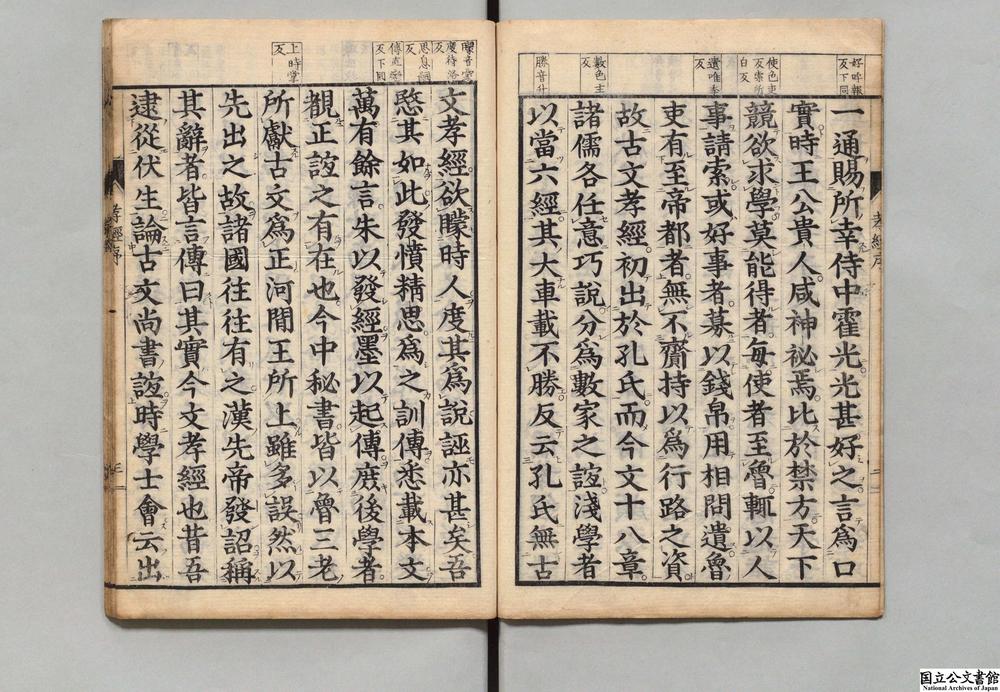 好呼報
反下同
使色吏
反索所
白反
遺唯季
反
數色主
反
勝音升
一通賜所幸侍中霍光光甚好之言爲口
實時王公貴人咸神祕焉比於禁方天下
競欲求學莫能得者每使者至魯輒以人
事請索或好事者募以錢帛用相問遺魯
吏有至帝都者無不齎持以爲行路之資
故古文孝經初出於孔氏而今文十八章
諸儒各任意巧說分爲數家之誼淺學者
以當六經其大車載不勝反云孔氏無古
孝經序
二
度待洛
反
思息嗣
反
傳直戀
反下同
上時掌
反
文孝經欲矇時人度其爲說誣亦甚矣吾
愍其如此發憤精思爲之訓傳悉載本文
萬有餘言朱以發經墨以起傳庶後學者
覩正誼之有在也今中秘書皆以魯三老
所獻古文爲正河間王所上雖多誤然以
先出之故諸國往往有之漢先帝發詔稱
其辭者皆言傳曰其實今文孝經也昔吾
逮從伏生論古文尚書誼時學士會云出
孝經序
国立公文書館
National Archives of Japan